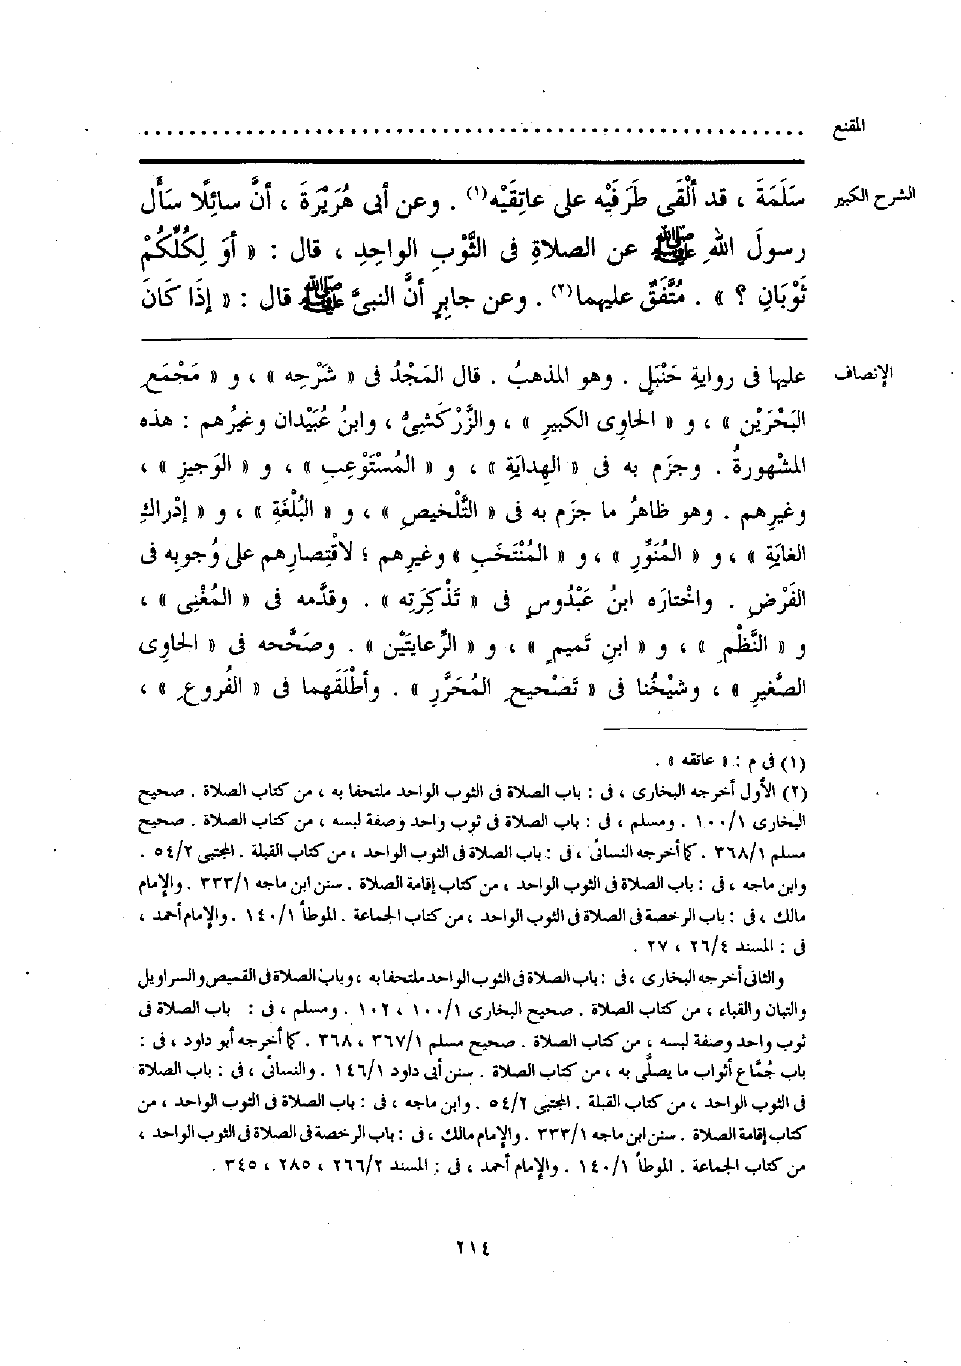 المقنع ........................................................
الشرح الكبير سَلَمَةَ ، قد ألْقَى طَرَفَيْه على عاتِقَيْه(١) . وعن أبى هُرَيْرَةَ ، أنَّ سائِلًا سَأَل
رسولَ اللهِ ﷺ عن الصلاةِ فى الثَّوْبِ الواحِدِ ، قال : « أوَ لِكُلِّكُمْ
ثَوْبَانِ ؟ » . مُتَّفَقٌ عليهما(٢) . وعن جابِرٍ أنَّ النبىَّ ﷺ قال : « إذَا كَانَ
الإنصاف عليها فى روايةِ حَنْبَلٍ . وهو المذهبُ . قال المَجْدُ فى « شَرْحِه » ، و « مَجْمَعِ
البَحْرَيْن » ، و « الحاوِى الكبيرِ » ، والزَّرْكَشِىُّ ، وابنُ عُبَيْدان وغيرُهم : هذه
المشهورةُ . وجزَم به فى « الهِدايَةِ » ، و « المُسْتَوْعِبِ » ، و « الوَجيزِ » ،
وغيرِهم . وهو ظاهرُ ما جزَم به فى « التَّلْخيصِ » ، و « البُلْغَةِ » ، و « إدْراكِ
الغايَةِ » ، و « المُنَوِّرِ » ، و « المُنْتَخَبِ » وغيرِهم ؛ لاقْتِصارِهم على وُجوبِه فى
الفَرْضِ . واخْتارَه ابنُ عَبْدُوسٍ فى « تَذْكِرَتِه » . وقدَّمه فى « المُغْنِى » ،
و « النَّظْمِ » ، و « ابنِ تَميمٍ » ، و « الرِّعايتَيْن » . وصَحَّحه فى « الحاوِى
الصَّغيرِ » ، وشيْخُنا فى « تَصْحيحِ المُحَرَّرِ » . وأطْلَقَهما فى « الفُروعِ » ،
(١) فى م : « عاتقه » .
(٢) الأول أخرجه البخارى ، فى : باب الصلاة فى الثوب الواحد ملتحفا به ، من كتاب الصلاة . صحيح
البخارى ١٠٠/١ . ومسلم ، فى : باب الصلاة فى ثوب واحد وصفة لبسه ، من كتاب الصلاة . صحيح
مسلم ٣٦٨/١ . كما أخرجه النسائى ، فى : باب الصلاة فى الثوب الواحد ، من كتاب القبلة . المجتبى ٥٤/٢ .
وابن ماجه ، فى : باب الصلاة فى الثوب الواحد ، من كتاب إقامة الصلاة . سنن ابن ماجه ٣٣٣/١ . والإمام
مالك ، فى : باب الرخصة فى الصلاة فى الثوب الواحد ، من كتاب الجماعة . الموطأ ١٤٠/١ . والإمام أحمد ،
فى : المسند ٢٦/٤ ، ٢٧ .
والثانى أخرجه البخارى ، فى : باب الصلاة فى الثوب الواحد ملتحفا به ، وباب الصلاة فى القميص والسراويل
والتبان والقباء ، من كتاب الصلاة . صحيح البخارى ١٠٠/١ ، ١٠٢ . ومسلم ، فى : باب الصلاة فى
ثوب واحد وصفة لبسه ، من كتاب الصلاة . صحيح مسلم ٣٦٧/١ ، ٣٦٨ . كما أخرجه أبو داود ، فى :
باب جُمَّاع أثواب ما يصلَّى به ، من كتاب الصلاة . سنن أبى داود ١٤٦/١ . والنسائى ، فى : باب الصلاة
فى الثوب الواحد ، من كتاب القبلة . المجتبى ٥٤/٢ . وابن ماجه ، فى : باب الصلاة فى الثوب الواحد ، من
كتاب إقامة الصلاة . سنن ابن ماجه ٣٣٣/١ . والإمام مالك ، فى : باب الرخصة فى الصلاة فى الثوب الواحد ،
من كتاب الجماعة . الموطأ ١٤٠/١ . والإمام أحمد ، فى : المسند ٢٦٦/٢ ، ٢٨٥ ، ٣٤٥ .
٢١٤